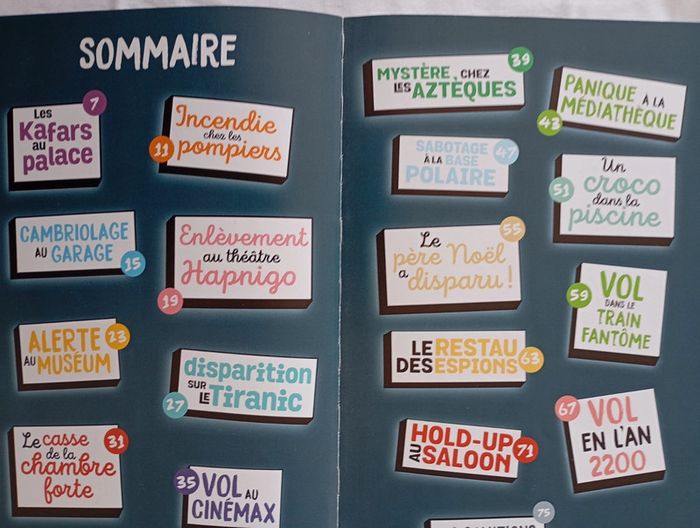 SOMMAIRE
7
Les
Kafars
au
palace
Incendie
chez les
11 pompiers
CAMBRIOLAGE
AU GARAGE 15
Enlèvement
au théâtre
Hapnigo
19
ALERTE 23
AU MUSÉUM
disparition
SUR
LE Tiranic
27
Le casse 31
de la
chambre
forte
35 VOL AU
CINÉMAX
39
MYSTÈRE CHEZ
LES AZTÈQUES
PANIQUE À LA
MÉDIATHÈQUE
43
SABOTAGE 47
À LA BASE
POLAIRE
Un
51 croco
dans la
piscine
55
Le
père Noël
a disparu !
59 VOL
DANS LE
TRAIN
FANTÔME
LE RESTAU
DES ESPIONS 63
67 VOL
EN L'AN
2200
HOLD-UP
AU SALOON 71
75